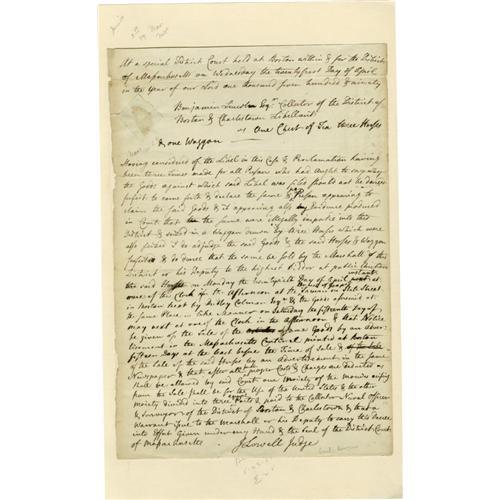 At a special District Court held at Boston within & for the District
of Massachusetts on Wednesday the twenty first Day of April
in the year of our Lord one thousand seven hundred & ninety
Benjamin Lincoln Esqr Collector of the District of
Boston & Charlestown Libellant
vs One Chest of Tea three Horses
& one Waggon
Having considered of the Libel in this Case & Proclamation having
been three times made for all Persons who had ought to say why
the Goods against which said Libel was filed should not be decreed
forfeit to come forth & declare the same & no Person appearing to
claim the said Goods & it appearing also by Evidence produced
in Court that the same were illegally imported into this
District & seized in a Waggon drawn by three Horses which were
also seized I do adjudge the said Goods & the said Horses & Waggon
forfeit & do decree that the same be sold by the Marshall of this
District or his Deputy to the highest Bidder at public Auction
the said Horses on Monday the Day of April instant at
one of the Clock in the Afternoon at the in State Street
in Boston kept by Dudley Colman Esqr & the Goods aforesaid at
the same Place in like Manner on Saturday the fifteenth Day of
may next at one of the Clock in the afternoon & that Notice
be given of the Sale of the same Goods by an Adver
tisement in the Massachusetts Centinel printed at Boston
fifteen Days at the least before the Time of Sale &
of the Sale of the said Horses by an Advertisement in the same
Newspaper & that after all proper Costs & Charges are deducted as
shall be allowed by said Court one Moiety of the monies arising
from the Sale shall be for the Use of the United States & the other
moiety divided into three Parts & paid to the Collector Naval Officer
& Surveyor of the District of Boston & Charlestown & that a
Warrant issue to the Marshall or his Deputy to carry this Decree
into Effect Given under my Hand & the Seal of the District Court
of Massachusetts
J Lowell Judge